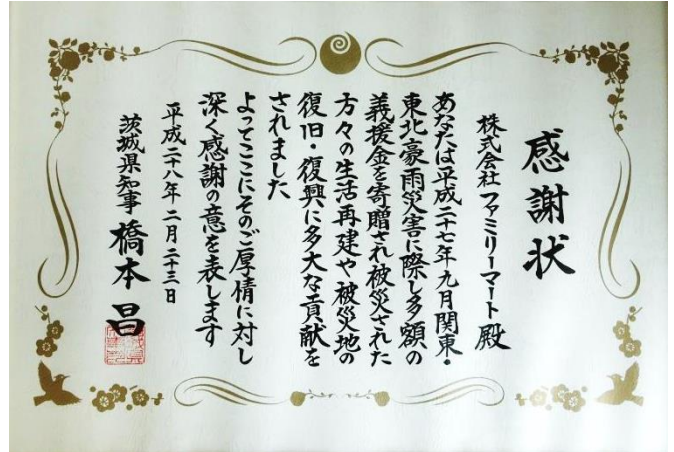 感謝状
株式会社ファミリーマート殿
あなたは平成二十七年九月関東・
東北豪雨災害に際し多額の
義援金を寄贈され被災された
方々の生活再建や被災地の
復旧・復興に多大な貢献を
されました
よってここにそのご厚情に対し
深く感謝の意を表します
平成二十八年二月二十三日
茨城県知事 橋本昌